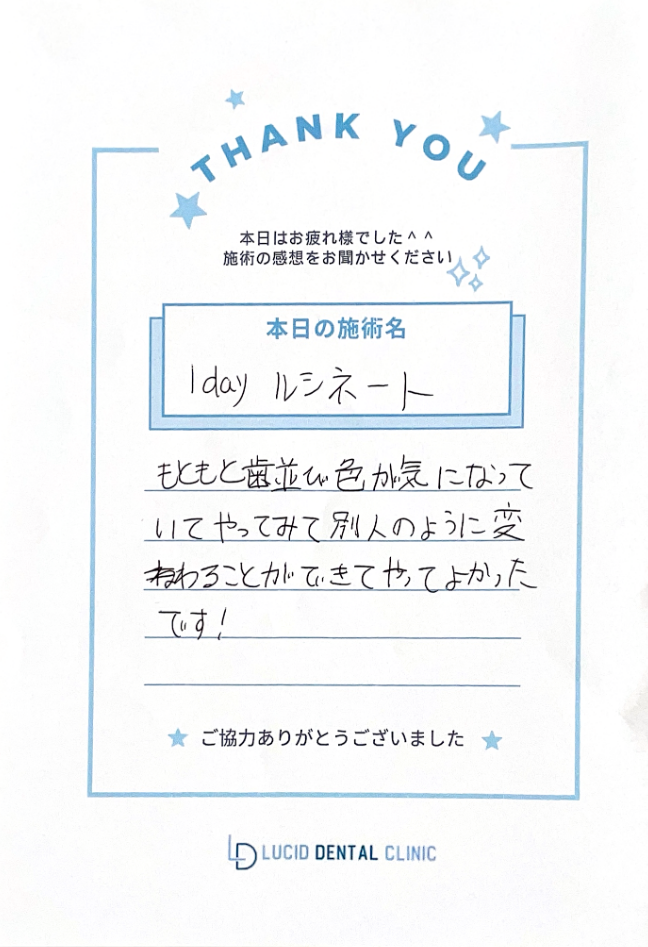 THANK YOU
本日はお疲れ様でした^ ^
施術の感想をお聞かせください
本日の施術名
1day ルシネート
もともと歯並び色が気になって
いてやってみて別人のように変
わることができてやってよかった
です!
ご協力ありがとうございました
LD LUCID DENTAL CLINIC